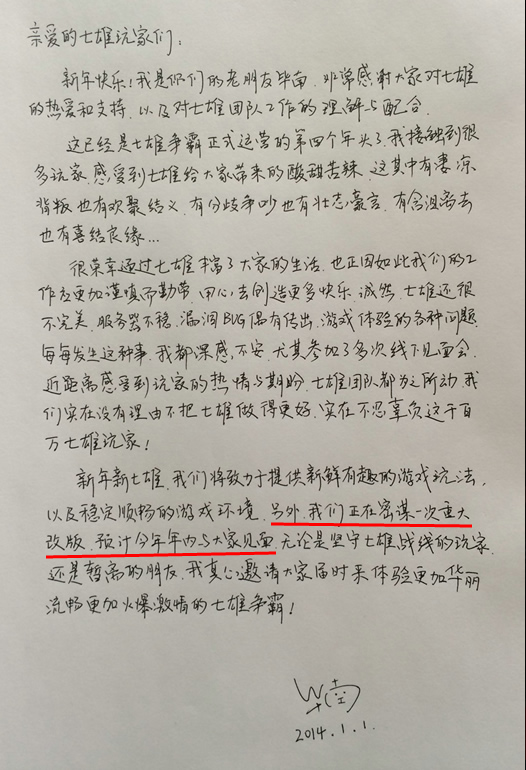 亲爱的七雄玩家们：
新年快乐！我是你们的老朋友毕南，非常感谢大家对七雄
的热爱和支持，以及对七雄团队工作的理解与配合。
这已经是七雄争霸正式运营的第四个年头了，我接触到很
多玩家，感受到七雄给大家带来的酸甜苦辣，这其中有凄凉
背叛也有欢聚结义，有分歧争吵也有壮志豪言，有含泪离去
也有喜结良缘…
很荣幸通过七雄丰富了大家的生活，也正因如此我们的工
作应更加谨慎而勤奋，用心去创造更多快乐。诚然，七雄还很
不完美，服务器不稳，漏洞BUG偶有传出，游戏体验的各种问题，
每每发生这种事，我都深感不安，尤其参加了多次线下见面会，
近距离感受到玩家的热情与期盼，七雄团队都为之所动，我
们实在没有理由不把七雄做得更好，实在不忍辜负这千百
万七雄玩家！
新年新七雄，我们将致力于提供新鲜有趣的游戏玩法，
以及稳定顺畅的游戏环境，另外，我们正在密谋一次重大
改版，预计今年年内与大家见面，无论是坚守七雄战线的玩家，
还是暂离的朋友，我真心邀请大家届时来体验更加华丽
流畅更加火爆激情的七雄争霸！
毕南
2014.1.1.